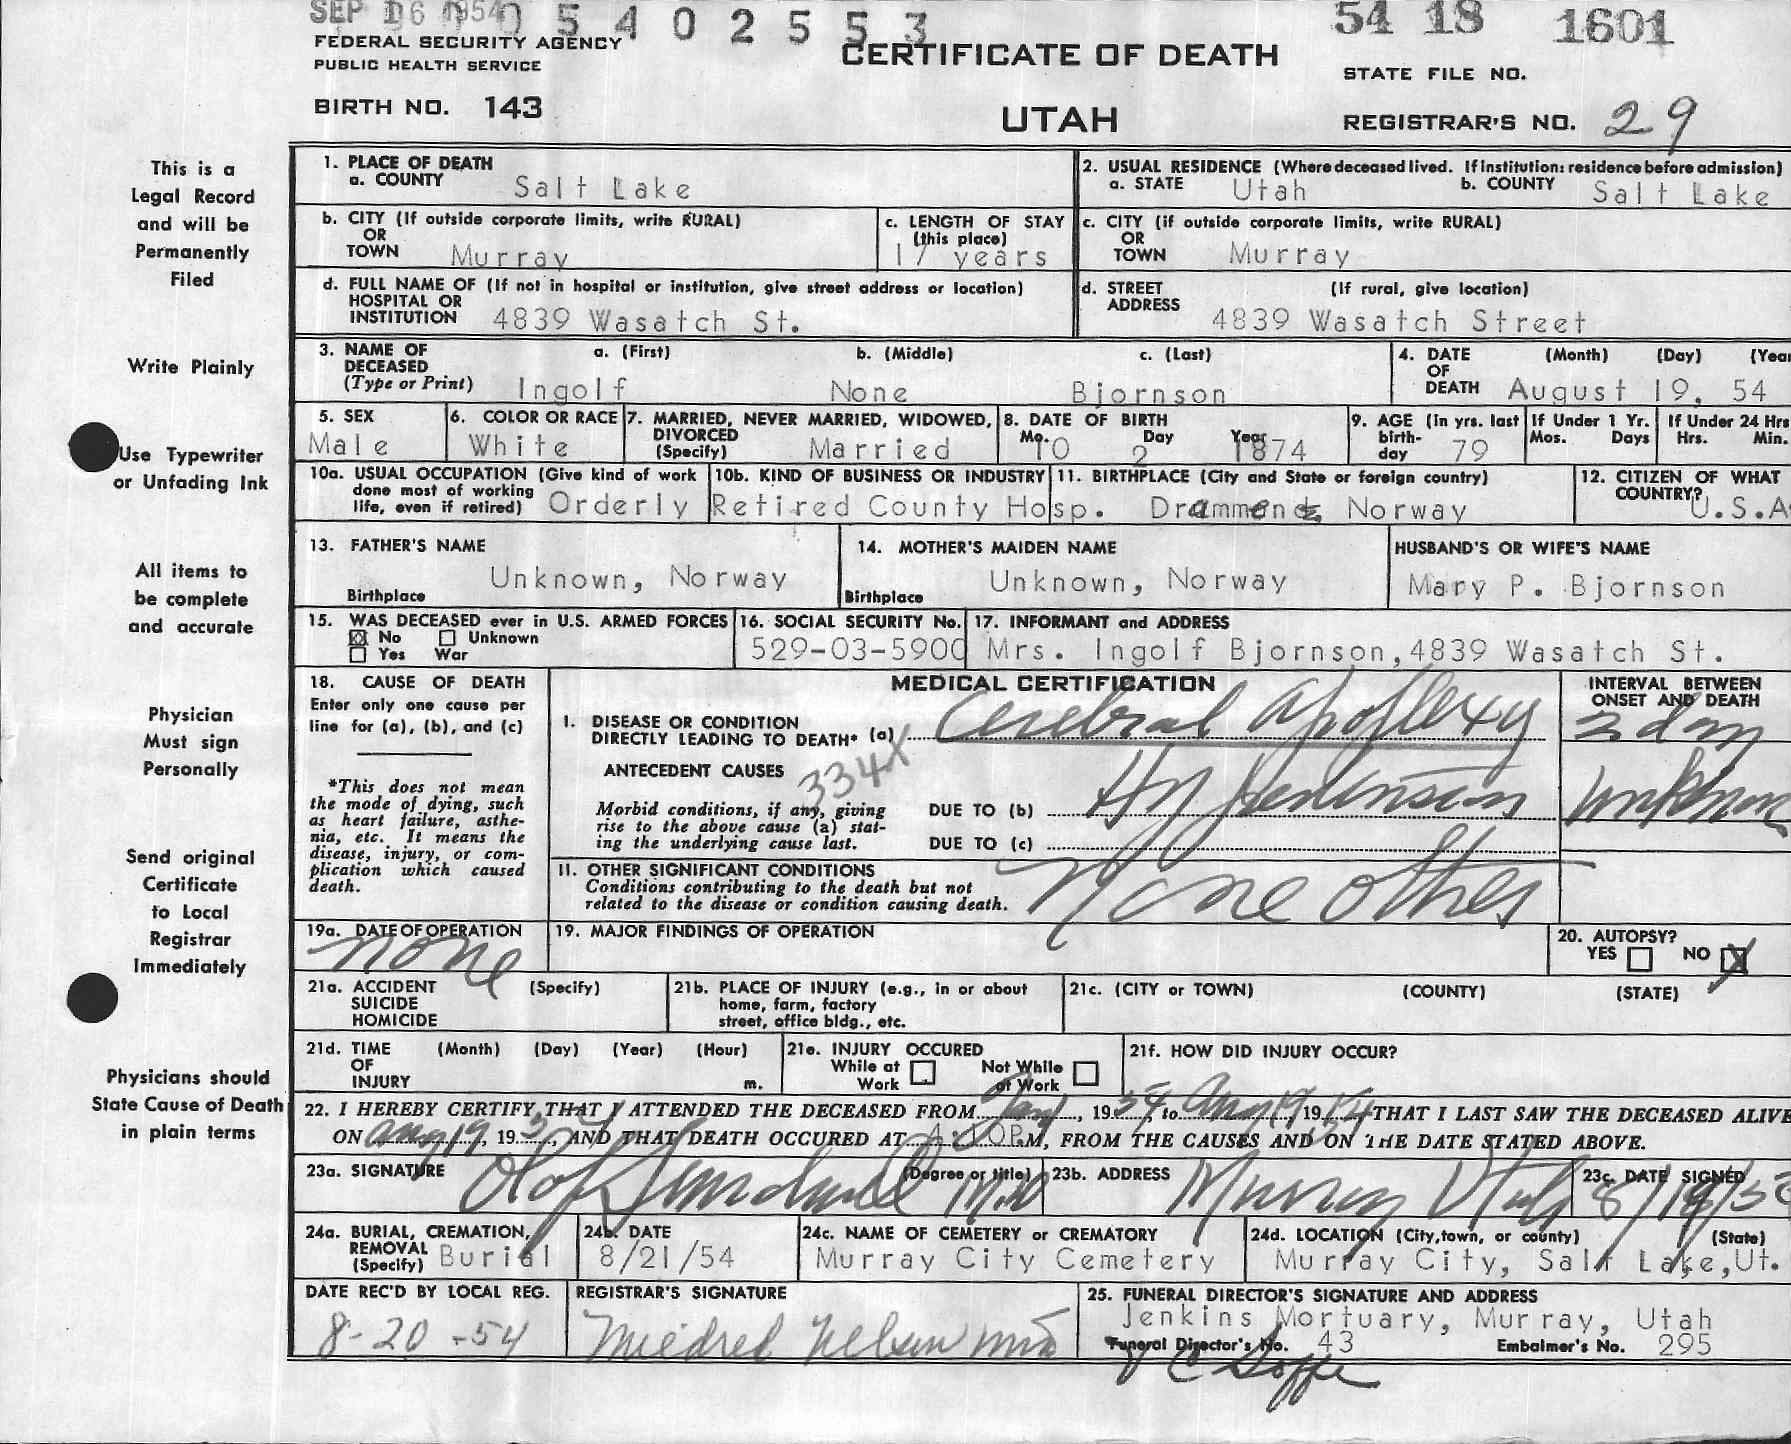 SEP 16 1954 0 5 4 0 2 5 5 3 54 18 1601
FEDERAL SECURITY AGENCY
PUBLIC HEALTH SERVICE
CERTIFICATE OF DEATH
STATE FILE NO.
BIRTH NO. 143
UTAH
REGISTRAR'S NO. 29
This is a
Legal Record
and will be
Permanently
Filed
Write Plainly
Use Typewriter
or Unfading Ink
All items to
be complete
and accurate
Physician
Must sign
Personally
Send original
Certificate
to Local
Registrar
Immediately
Physicians should
State Cause of Death
in plain terms
1. PLACE OF DEATH
a. COUNTY Salt Lake
2. USUAL RESIDENCE (Where deceased lived. If institution: residence before admission)
a. STATE Utah b. COUNTY Salt Lake
b. CITY (If outside corporate limits, write RURAL)
OR
TOWN Murray
c. LENGTH OF STAY
(this place)
17 years
c. CITY (if outside corporate limits, write RURAL)
OR
TOWN Murray
d. FULL NAME OF (If not in hospital or institution, give street address or location)
HOSPITAL OR
INSTITUTION 4839 Wasatch St.
d. STREET (If rural, give location)
ADDRESS
4839 Wasatch Street
3. NAME OF a. (First) b. (Middle) c. (Last)
DECEASED
(Type or Print) Ingolf None Bjornson
4. DATE (Month) (Day) (Year
OF
DEATH August 19, 54
5. SEX
Male
6. COLOR OR RACE
White
7. MARRIED, NEVER MARRIED, WIDOWED,
DIVORCED
(Specify) Married
8. DATE OF BIRTH
Mo. Day Year
10 2 1874
9. AGE (In yrs. last
birth-
day 79
If Under 1 Yr.
Mos. Days
If Under 24 Hrs
Hrs. Min.
10a. USUAL OCCUPATION (Give kind of work
done most of working
life, even if retired) Orderly
10b. KIND OF BUSINESS OR INDUSTRY
Retired County Hosp.
11. BIRTHPLACE (City and State or foreign country)
Drammen, Norway
12. CITIZEN OF WHAT
COUNTRY?
U.S.A
13. FATHER'S NAME
Unknown, Norway
Birthplace
14. MOTHER'S MAIDEN NAME
Unknown, Norway
Birthplace
HUSBAND'S OR WIFE'S NAME
Mary P. Bjornson
15. WAS DECEASED ever in U.S. ARMED FORCES
☒ No ☐ Unknown
☐ Yes War
16. SOCIAL SECURITY No.
529-03-5900
17. INFORMANT and ADDRESS
Mrs. Ingolf Bjornson, 4839 Wasatch St.
18. CAUSE OF DEATH
Enter only one cause per
line for (a), (b), and (c)
*This does not mean
the mode of dying, such
as heart failure, asthe-
nia, etc. It means the
disease, injury, or com-
plication which caused
death.
MEDICAL CERTIFICATION
INTERVAL BETWEEN
ONSET AND DEATH
I. DISEASE OR CONDITION
DIRECTLY LEADING TO DEATH* (a) Cerebral Apoplexy
ANTECEDENT CAUSES 334X
Morbid conditions, if any, giving
rise to the above cause (a) stat-
ing the underlying cause last.
DUE TO (b) Hypertension Unknown
DUE TO (c)
II. OTHER SIGNIFICANT CONDITIONS
Conditions contributing to the death but not
related to the disease or condition causing death.
None other
19a. DATE OF OPERATION
none
19. MAJOR FINDINGS OF OPERATION
20. AUTOPSY?
YES ☐ NO ☒
21a. ACCIDENT (Specify)
SUICIDE
HOMICIDE
21b. PLACE OF INJURY (e.g., in or about
home, farm, factory
street, office bldg., etc.
21c. (CITY or TOWN) (COUNTY) (STATE)
21d. TIME (Month) (Day) (Year) (Hour)
OF
INJURY m.
21e. INJURY OCCURED
While at Work ☐ Not While at Work ☐
21f. HOW DID INJURY OCCUR?
22. I HEREBY CERTIFY, THAT I ATTENDED THE DECEASED FROM 1954, to Aug 19 1954 THAT I LAST SAW THE DECEASED ALIVE
ON Aug 19, 1954, AND THAT DEATH OCCURED AT P.M, FROM THE CAUSES AND ON THE DATE STATED ABOVE.
23a. SIGNATURE (Degree or title) M.D.
23b. ADDRESS Murray Utah
23c. DATE SIGNED
24a. BURIAL, CREMATION,
REMOVAL
(Specify) Burial
24b. DATE
8/21/54
24c. NAME OF CEMETERY or CREMATORY
Murray City Cemetery
24d. LOCATION (City, town, or county) (State)
Murray City, Salt Lake, Ut.
DATE REC'D BY LOCAL REG.
8-20-54
REGISTRAR'S SIGNATURE
Mildred Nelson
25. FUNERAL DIRECTOR'S SIGNATURE AND ADDRESS
Jenkins Mortuary, Murray, Utah
Funeral Director's No. 43 Embalmer's No. 295